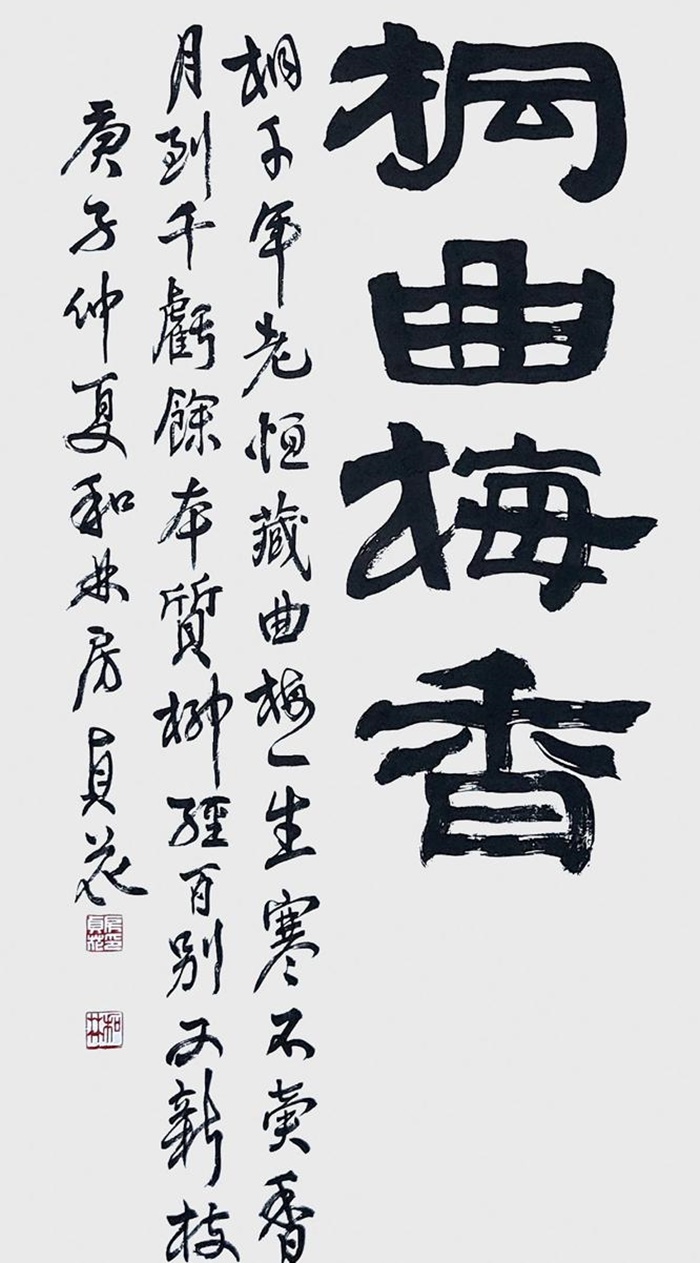 桐曲梅香
桐千年老恒藏曲梅一生寒不賣香
月到千虧餘本質柳經百別又新枝
庚子仲夏和林房貞花
房貞花印
和林